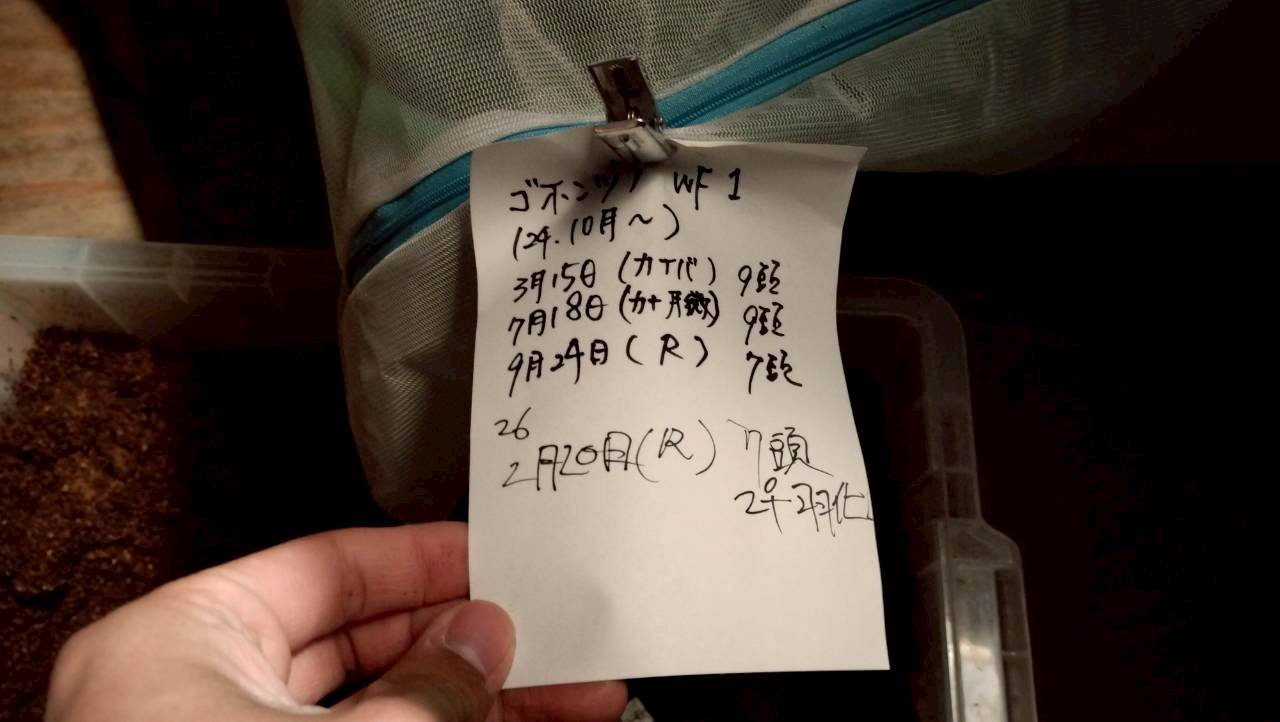 ゴホンヅノ WF1
(24.10月〜)
3月15日(カイバ) 9頭
7月18日(カナ月微) 9頭
9月24日(R) 7頭
26
2月20日(R) 7頭
2♀羽化